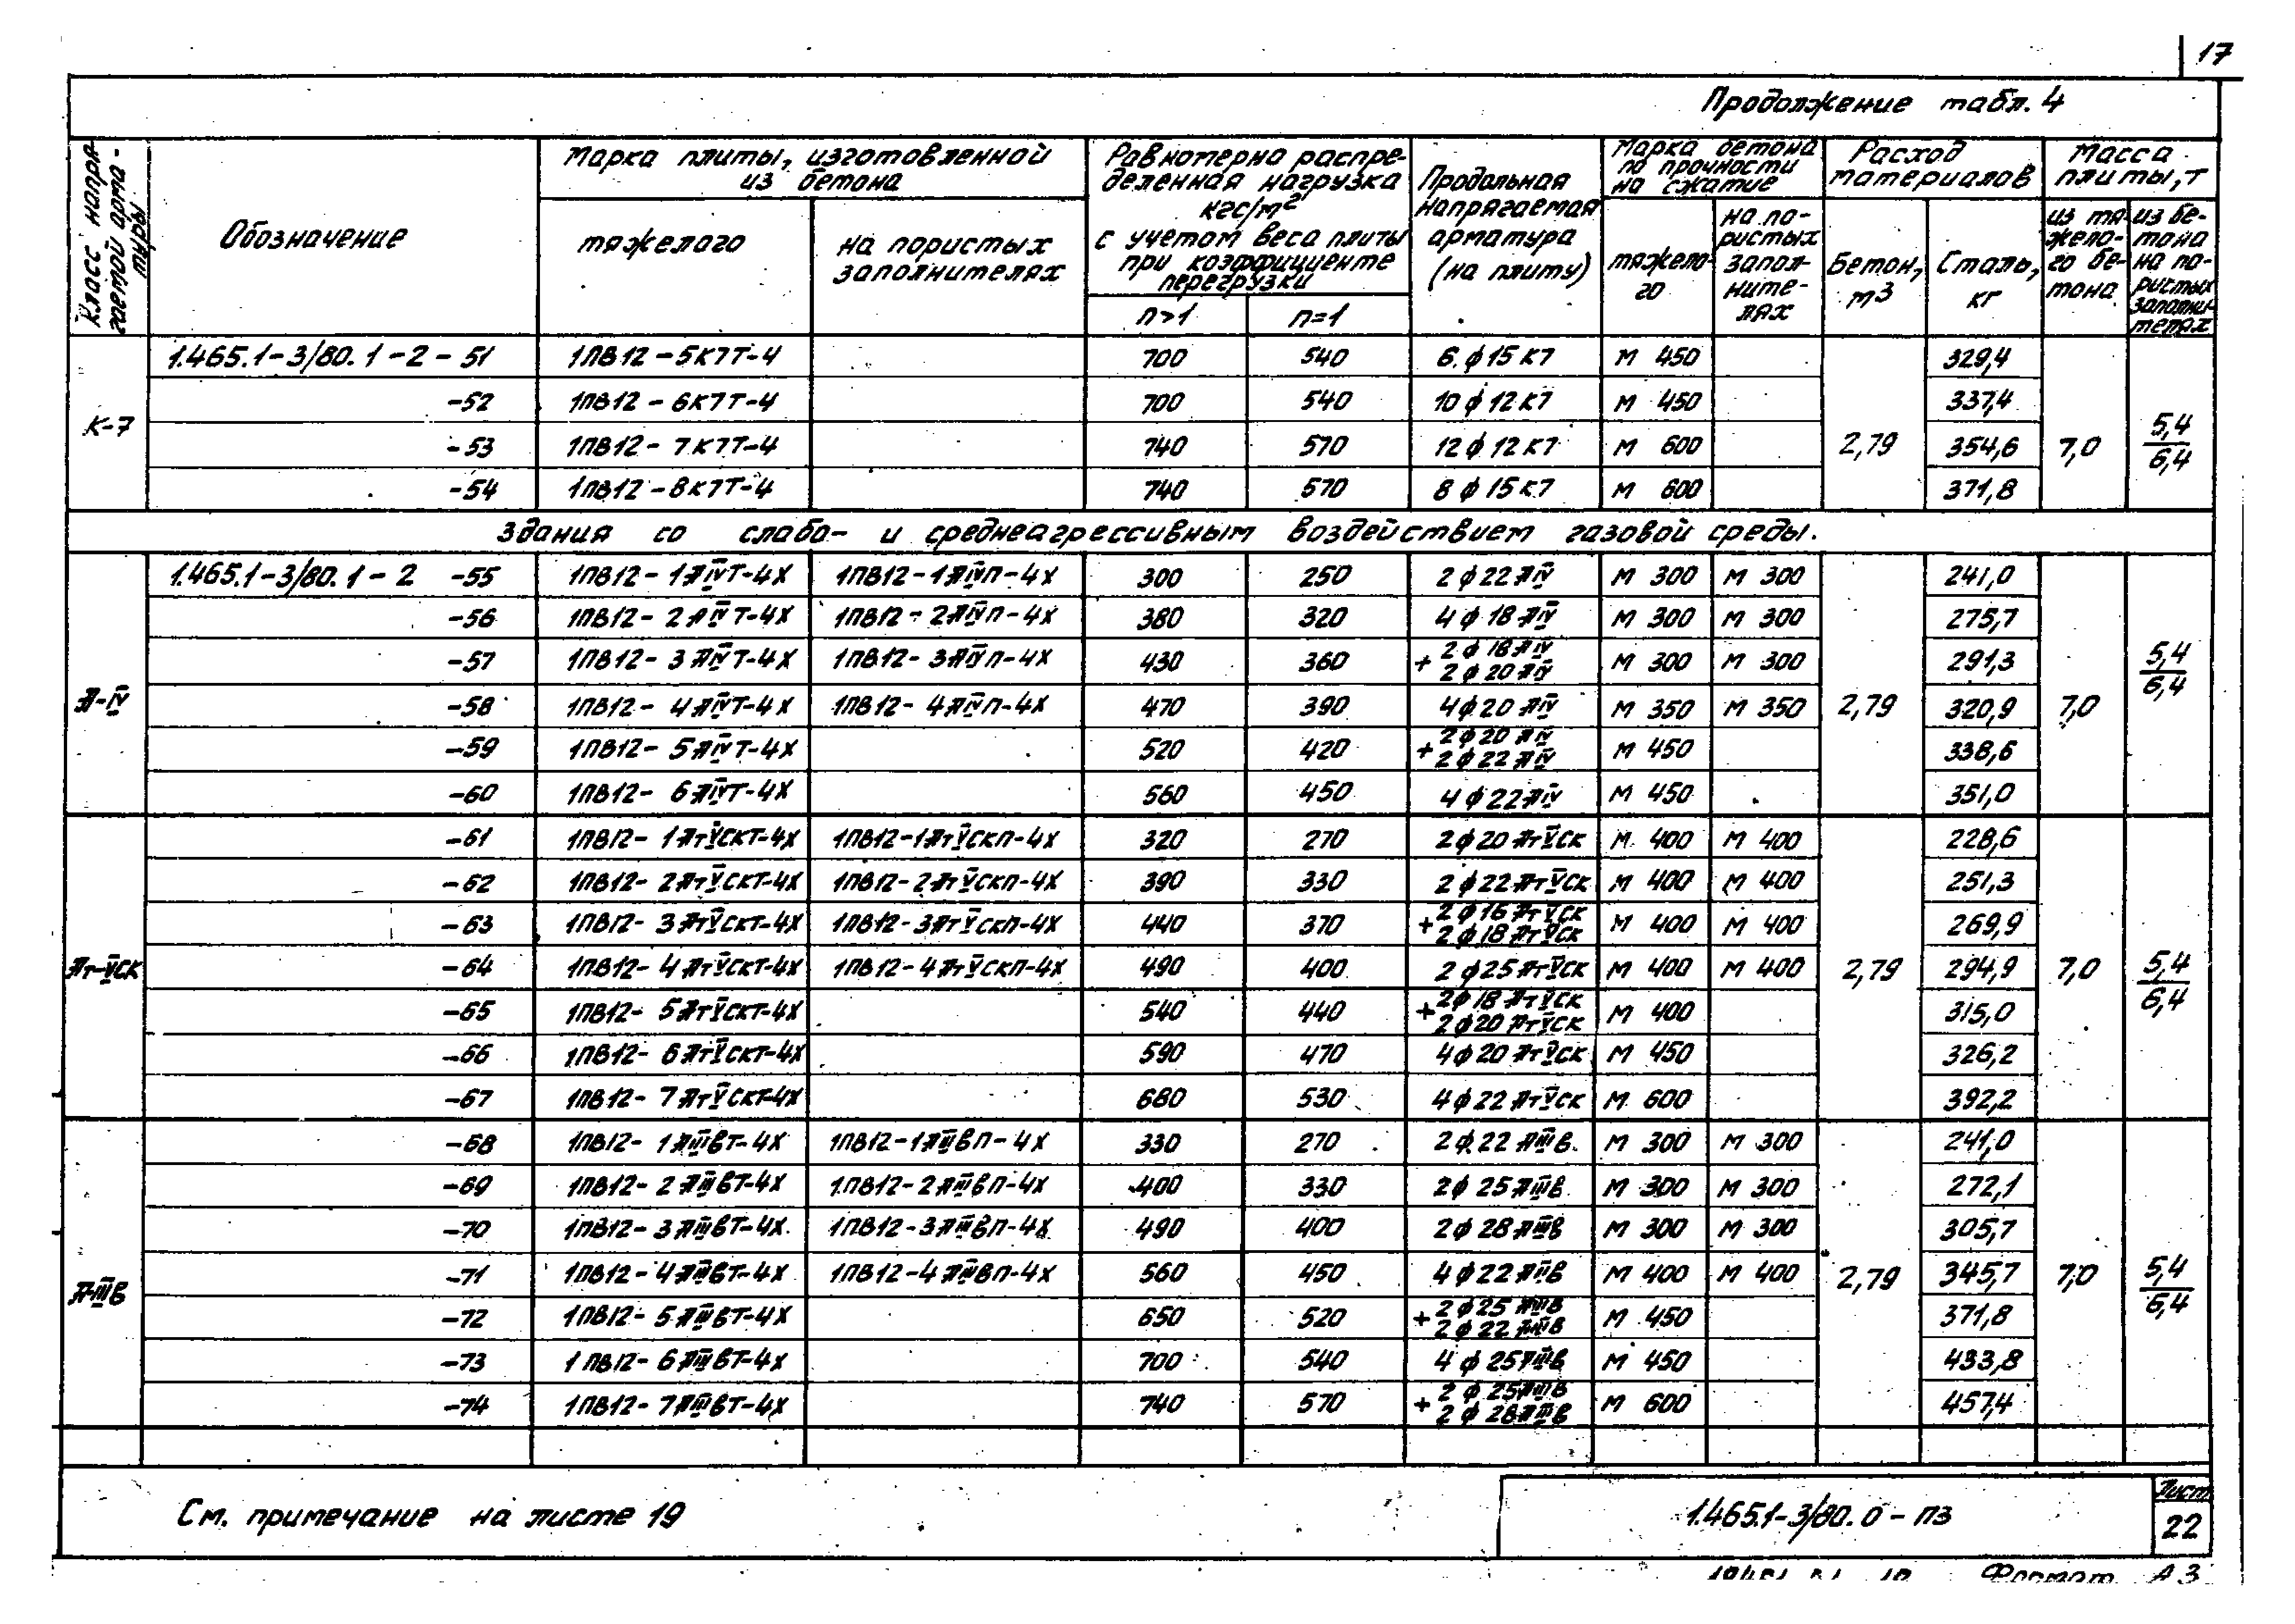 17
Продолжение табл. 4
Класс напрягаемой арматуры
Обозначение
Марка плиты, изготовленной из бетона
тяжелого
на пористых заполнителях
Равномерно распределенная нагрузка кгс/м² с учетом веса плиты при коэффициенте перегрузки
n>1
n=1
Продольная напрягаемая арматура (на плиту)
Марка бетона по прочности на сжатие
тяжелого
на пористых заполнителях
Расход материалов
Бетон, м3
Сталь, кг
Масса плиты, т
из тяжелого бетона
из бетона на пористых заполнителях
К-7
1.465.1-3/80.1-2-51 1ПВ12-5К7Т-4 700 540 6 ф 15 К7 М 450 329,4
-52 1ПВ12-6К7Т-4 700 540 10 ф 12 К7 М 450 337,4
-53 1ПВ12-7К7Т-4 740 570 12 ф 12 К7 М 600 2,79 354,6 7,0 5,4/6,4
-54 1ПВ12-8К7Т-4 740 570 8 ф 15 К7 М 600 371,8
Здания со слабо- и среднеагрессивным воздействием газовой среды.
А-IV
1.465.1-3/80.1-2 -55 1ПВ12-1АIVТ-4Х 1ПВ12-1АIVП-4Х 300 250 2 ф 22 АIV М 300 М 300 241,0
-56 1ПВ12-2АIVТ-4Х 1ПВ12-2АIVП-4Х 380 320 4 ф 18 АIV М 300 М 300 275,7
-57 1ПВ12-3АIVТ-4Х 1ПВ12-3АIVП-4Х 430 360 2 ф 18 АIV + 2 ф 20 АIV М 300 М 300 291,3 5,4/6,4
-58 1ПВ12-4АIVТ-4Х 1ПВ12-4АIVП-4Х 470 390 4 ф 20 АIV М 350 М 350 2,79 320,9 7,0
-59 1ПВ12-5АIVТ-4Х 520 420 2 ф 20 АIV + 2 ф 22 АIV М 450 338,6
-60 1ПВ12-6АIVТ-4Х 560 450 4 ф 22 АIV М 450 351,0
Ат-VСК
-61 1ПВ12-1АтVСКТ-4Х 1ПВ12-1АтVСКП-4Х 320 270 2 ф 20 АтVСК М 400 М 400 228,6
-62 1ПВ12-2АтVСКТ-4Х 1ПВ12-2АтVСКП-4Х 390 330 2 ф 22 АтVСК М 400 М 400 251,3
-63 1ПВ12-3АтVСКТ-4Х 1ПВ12-3АтVСКП-4Х 440 370 2 ф 16 АтVСК + 2 ф 18 АтVСК М 400 М 400 269,9
-64 1ПВ12-4АтVСКТ-4Х 1ПВ12-4АтVСКП-4Х 490 400 2 ф 25 АтVСК М 400 М 400 2,79 294,9 7,0 5,4/6,4
-65 1ПВ12-5АтVСКТ-4Х 540 440 2 ф 18 АтVСК + 2 ф 20 АтVСК М 400 315,0
-66 1ПВ12-6АтVСКТ-4Х 590 470 4 ф 20 АтVСК М 450 326,2
-67 1ПВ12-7АтVСКТ-4Х 680 530 4 ф 22 АтVСК М 600 392,2
А-IIIв
-68 1ПВ12-1АIIIвТ-4Х 1ПВ12-1АIIIвП-4Х 330 270 2 ф 22 АIIIв М 300 М 300 241,0
-69 1ПВ12-2АIIIвТ-4Х 1ПВ12-2АIIIвП-4Х 400 330 2 ф 25 АIIIв М 300 М 300 272,1
-70 1ПВ12-3АIIIвТ-4Х 1ПВ12-3АIIIвП-4Х 490 400 2 ф 28 АIIIв М 300 М 300 305,7
-71 1ПВ12-4АIIIвТ-4Х 1ПВ12-4АIIIвП-4Х 560 450 4 ф 22 АIIIв М 400 М 400 2,79 345,7 7,0 5,4/6,4
-72 1ПВ12-5АIIIвТ-4Х 650 520 2 ф 25 АIIIв + 2 ф 22 АIIIв М 450 371,8
-73 1ПВ12-6АIIIвТ-4Х 700 540 4 ф 25 АIIIв М 450 433,8
-74 1ПВ12-7АIIIвТ-4Х 740 570 2 ф 25 АIIIв + 2 ф 28 АIIIв М 600 457,4
См. примечание на листе 19
1.465.1-3/80.0-ПЗ
Лист
22
Формат А3